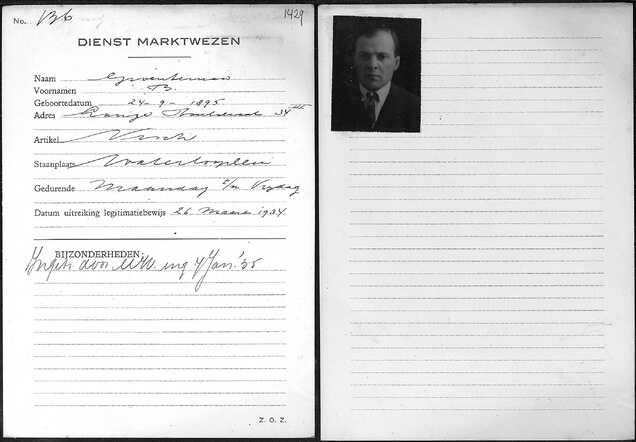 No. 136
1429
DIENST MARKTWEZEN
Naam Groenteman
Voornamen B.
Geboortedatum 24-9-1895
Adres Lange Houtstraat 34 III
Artikel Visch
Staanplaats Waterlooplein
Gedurende Maandag t/m Vrijdag
Datum uitreiking legitimatiebewijs 26 Maart 1934
BIJZONDERHEDEN:
door ing 4 Jan. '35
Z. O. Z.